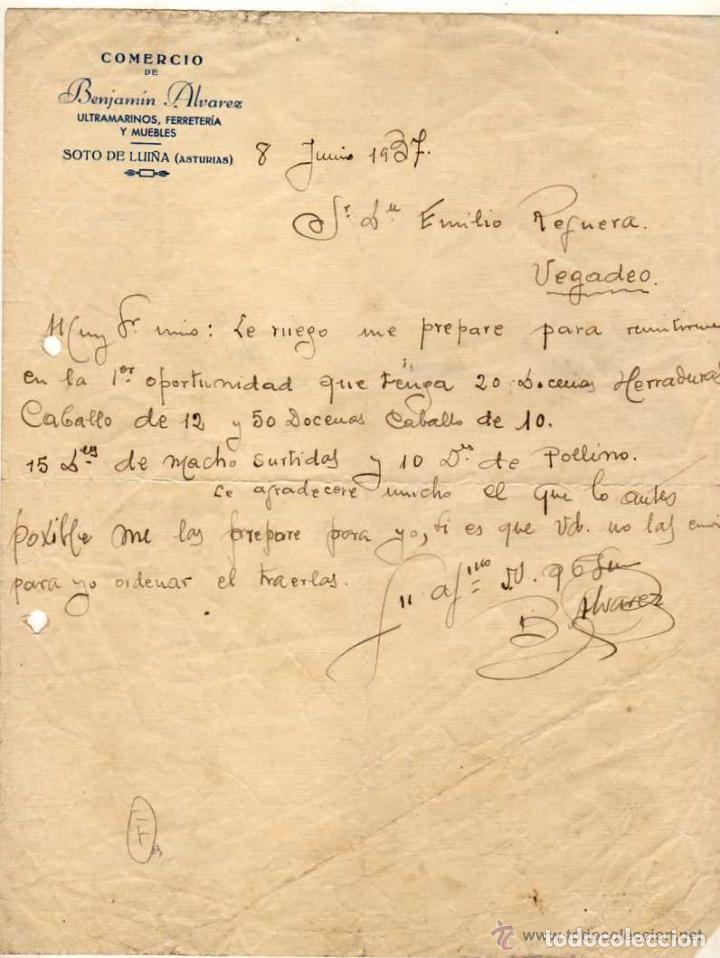 COMERCIO
DE
Benjamín Alvarez
ULTRAMARINOS, FERRETERÍA
Y MUEBLES
SOTO DE LUIÑA (ASTURIAS)
8 Junio 1937.
Sr. Dn Emilio Reguera.
Vegadeo.
Muy Sr. mio: Le ruego me prepare para remitirme
en la 1er oportunidad que tenga 20 Docenas Herraduras
Caballo de 12 y 50 Docenas Caballo de 10.
15 D.es de Macho surtidas y 10 D.es de Pollino.
Le agradecere mucho el que lo antes
posible me las prepare para yo, si es que Vd. no las envi
para yo ordenar el traerlas.
af.mo S.S. q
B Alvarez
www.todocoleccion.net
todocoleccion